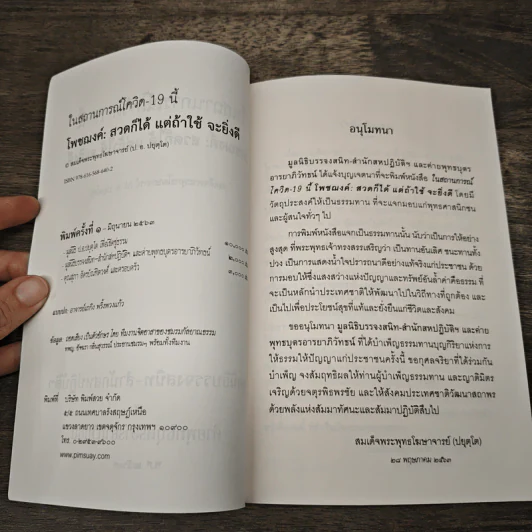 ในสถานการณ์โควิด-19 นี้
โพชฌงค์: สวดก็ได้ แต่ถ้าใช้ จะยิ่งดี
© สมเด็จพระพุทธโฆษาจารย์ (ป. อ. ปยุตฺโต)
ISBN
พิมพ์ครั้งที่ ๑ - มิถุนายน ๒๕๖๓
มูลนิธิบรรจงสนิท-สำนักสหปฏิบัติฯ และค่ายพุทธบุตรอารยาภิวัทธน์
และครอบครัว
แบบปก:
ข้อมูล: โดย ทีมงานจิตอาสาของชมรมกัลยาณธรรม
พร้อมทั้งทีมงาน
พิมพ์ที่
บริษัท พิมพ์สวย จำกัด
๕/๕ ถนนเทศบาลรังสฤษฎ์เหนือ
แขวงลาดยาว เขตจตุจักร กรุงเทพฯ ๑๐๙๐๐
โทร. ๐-๒๙๕๓-๙๖๐๐
www.pimsuay.com
อนุโมทนา
มูลนิธิบรรจงสนิท-สำนักสหปฏิบัติฯ และค่ายพุทธบุตร
อารยาภิวัทธน์ ได้แจ้งบุญเจตนาที่จะพิมพ์หนังสือ ในสถานการณ์
โควิด-19 นี้ โพชฌงค์: สวดก็ได้ แต่ถ้าใช้ จะยิ่งดี โดยมี
วัตถุประสงค์ให้เป็นธรรมทาน ที่จะแจกมอบแก่พุทธศาสนิกชน
และผู้สนใจทั่วๆ ไป
การพิมพ์หนังสือแจกเป็นธรรมทานนั้น นับว่าเป็นการให้อย่าง
สูงสุด ที่พระพุทธเจ้าทรงสรรเสริญว่า เป็นทานอันเลิศ ชนะทานทั้ง
ปวง เป็นการแสดงน้ำใจปรารถนาดีอย่างแท้จริงแก่ประชาชน ด้วย
การมอบให้ซึ่งแสงสว่างแห่งปัญญาและทรัพย์อันล้ำค่าคือธรรม ที่
จะเป็นหลักนำประเทศชาติให้พัฒนาไปในวิถีทางที่ถูกต้อง และ
เป็นไปเพื่อประโยชน์สุขที่แท้และยั่งยืนแก่ชีวิตและสังคม
ขออนุโมทนา มูลนิธิบรรจงสนิท-สำนักสหปฏิบัติฯ และค่าย
พุทธบุตรอารยาภิวัทธน์ ที่ได้บำเพ็ญธรรมทานบุญกิริยาแห่งการ
ให้ธรรมให้ปัญญาแก่ประชาชนครั้งนี้ ขอกุศลจริยาที่ได้ร่วมกัน
บำเพ็ญ จงสัมฤทธิผลให้ท่านผู้บำเพ็ญธรรมทาน และญาติมิตร
เจริญด้วยจตุรพิธพรชัย และให้สังคมประเทศชาติวัฒนาสถาพร
ด้วยพลังแห่งสัมมาทัศนะและสัมมาปฏิบัติสืบไป
สมเด็จพระพุทธโฆษาจารย์ (ปยุตฺโต)
๒๘ พฤษภาคม ๒๕๖๓